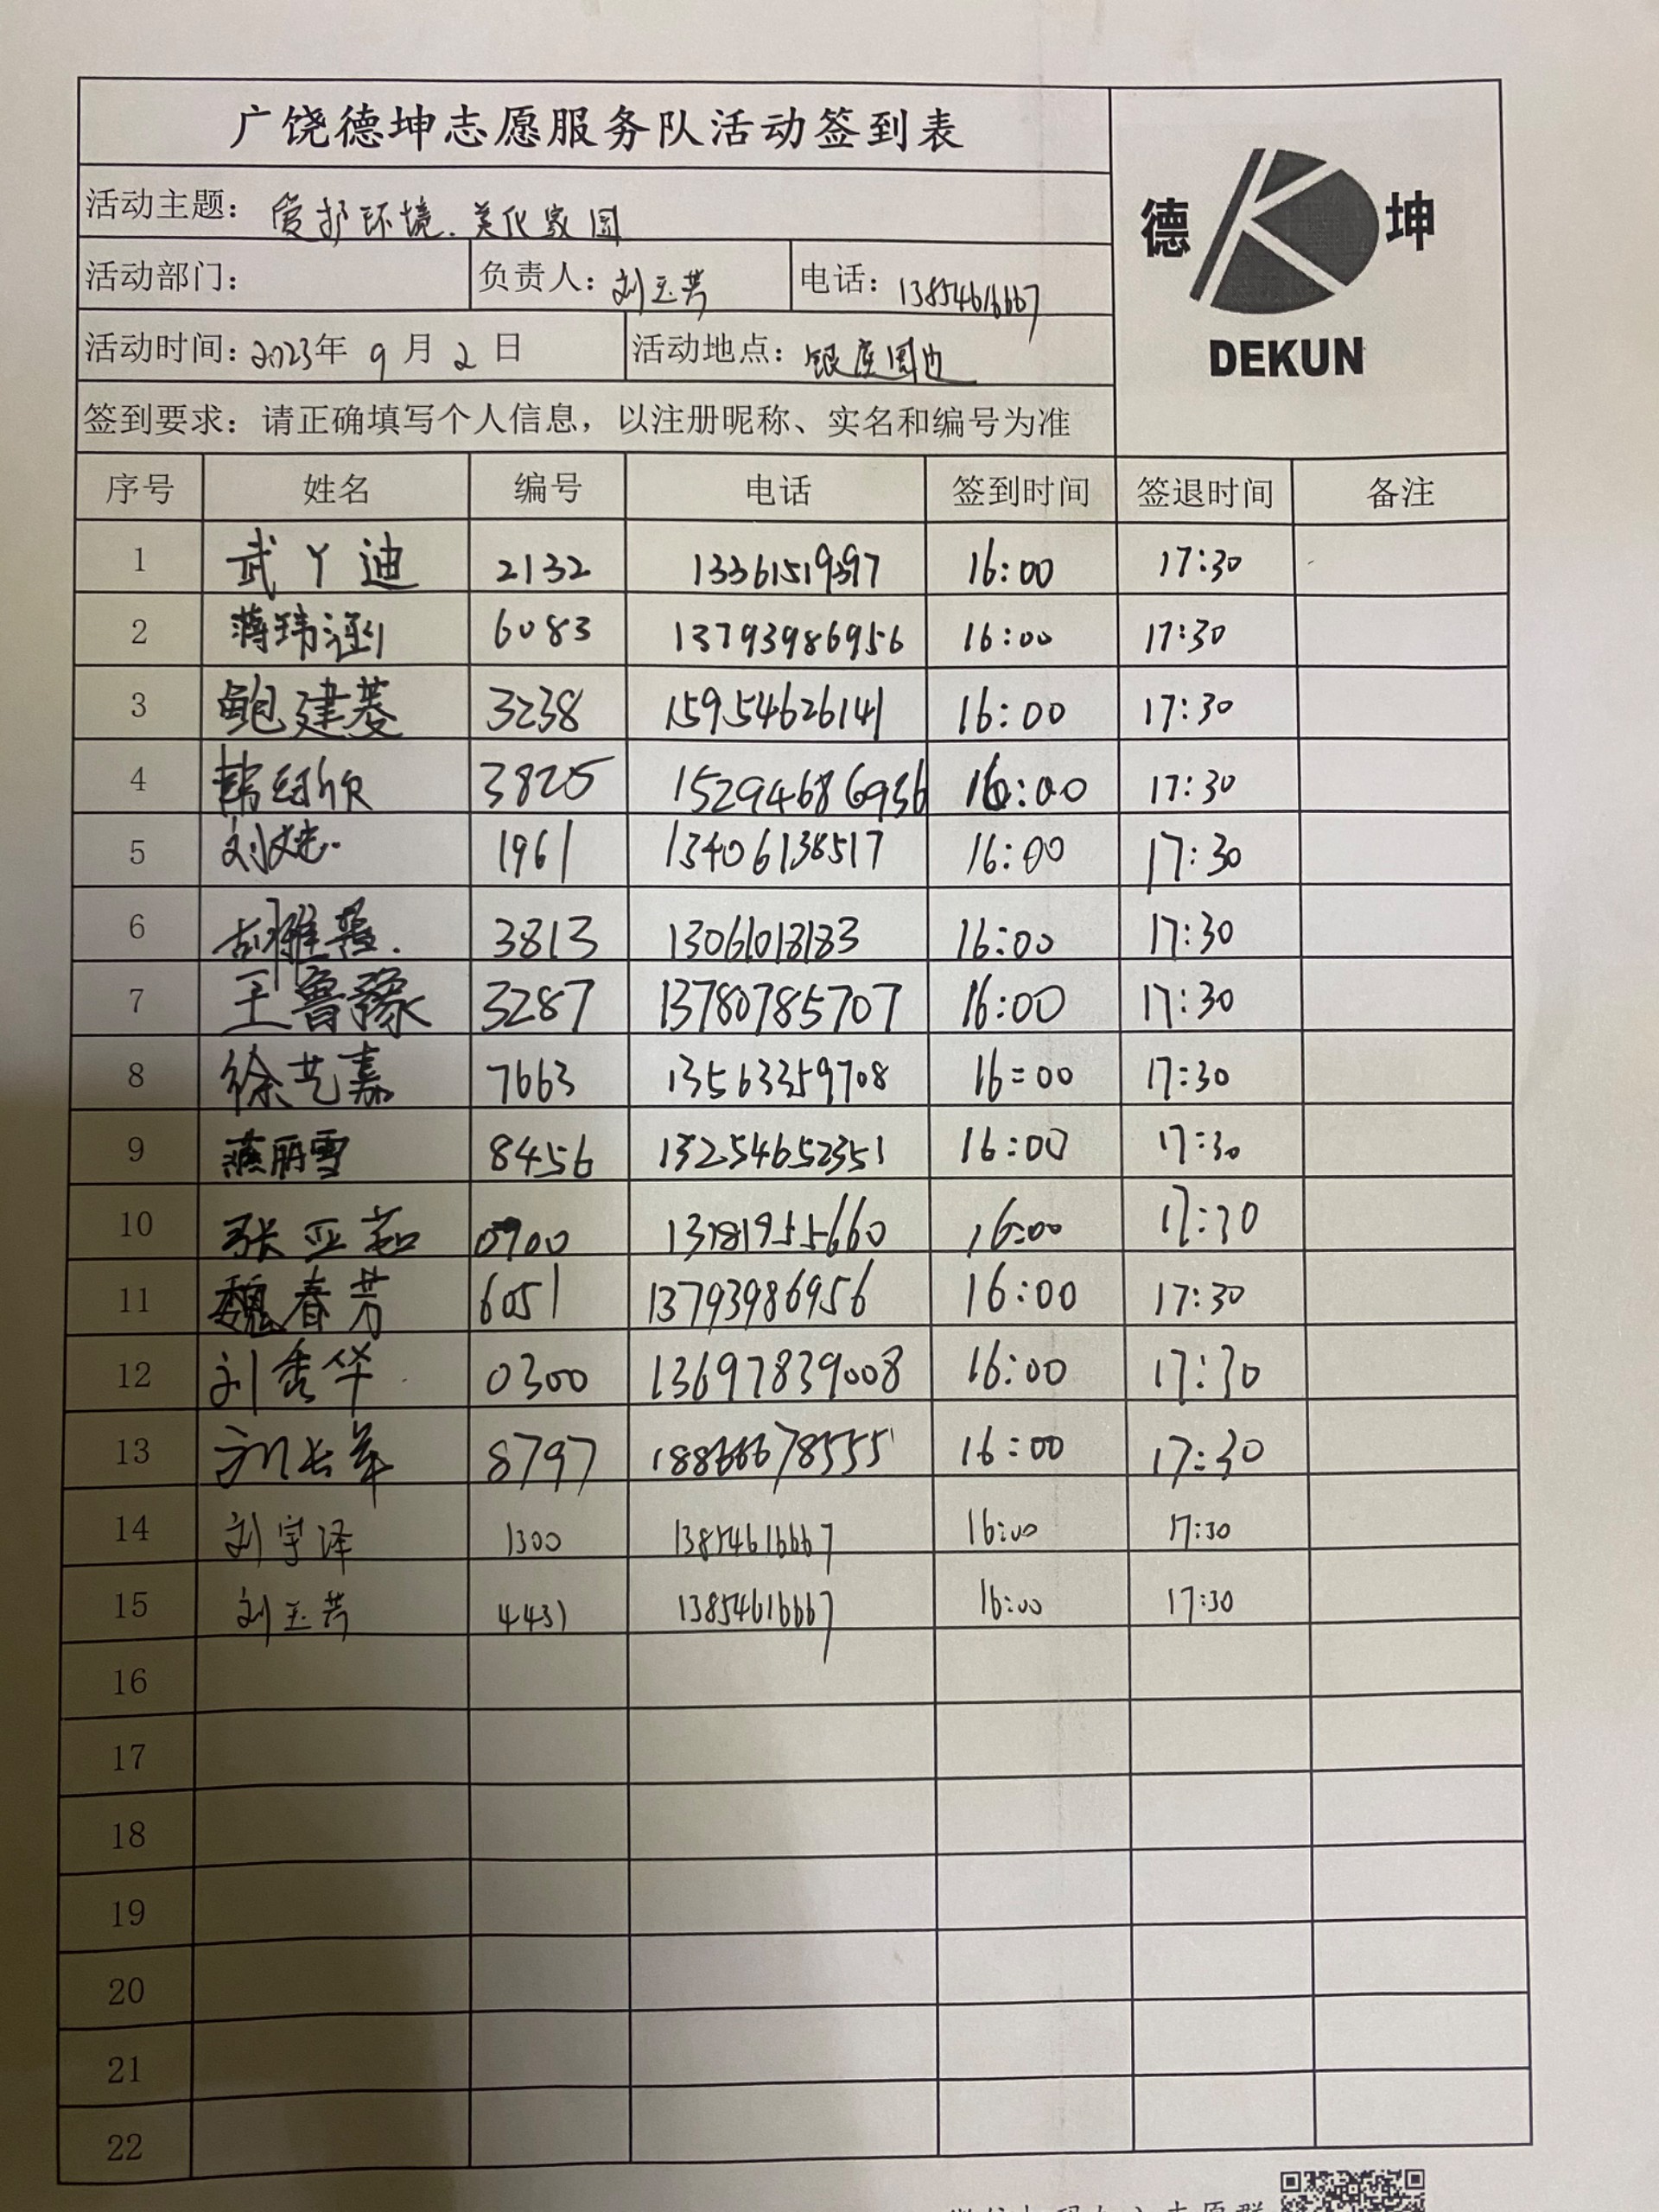 广饶德坤志愿服务队活动签到表
德 坤
DEKUN
活动主题：爱护环境.美化家园
活动部门： 负责人：刘玉芳 电话：13854616667
活动时间：2023年9月2日 活动地点：银座周边
签到要求：请正确填写个人信息，以注册昵称、实名和编号为准
序号 姓名 编号 电话 签到时间 签退时间 备注
1 武丫迪 2132 13361519397 16:00 17:30
2 蒋玮涵 6083 13793986956 16:00 17:30
3 鲍建菱 3238 15954626141 16:00 17:30
4 韩 欣 3825 15294686936 16:00 17:30
5 刘 1961 13406138517 16:00 17:30
6 胡雅 3813 13061018183 16:00 17:30
7 王鲁豫 3287 13780785707 16:00 17:30
8 徐艺嘉 7663 13563359708 16:00 17:30
9 燕丽雪 8456 13254652351 16:00 17:30
10 张亚茹 0900 13181955660 16:00 17:30
11 魏春芳 6051 13793986956 16:00 17:30
12 刘秀华 0300 13697839008 16:00 17:30
13 8797 18866678555 16:00 17:30
14 刘宇泽 1300 13854616667 16:00 17:30
15 刘玉芳 4431 13854616667 16:00 17:30
16
17
18
19
20
21
22